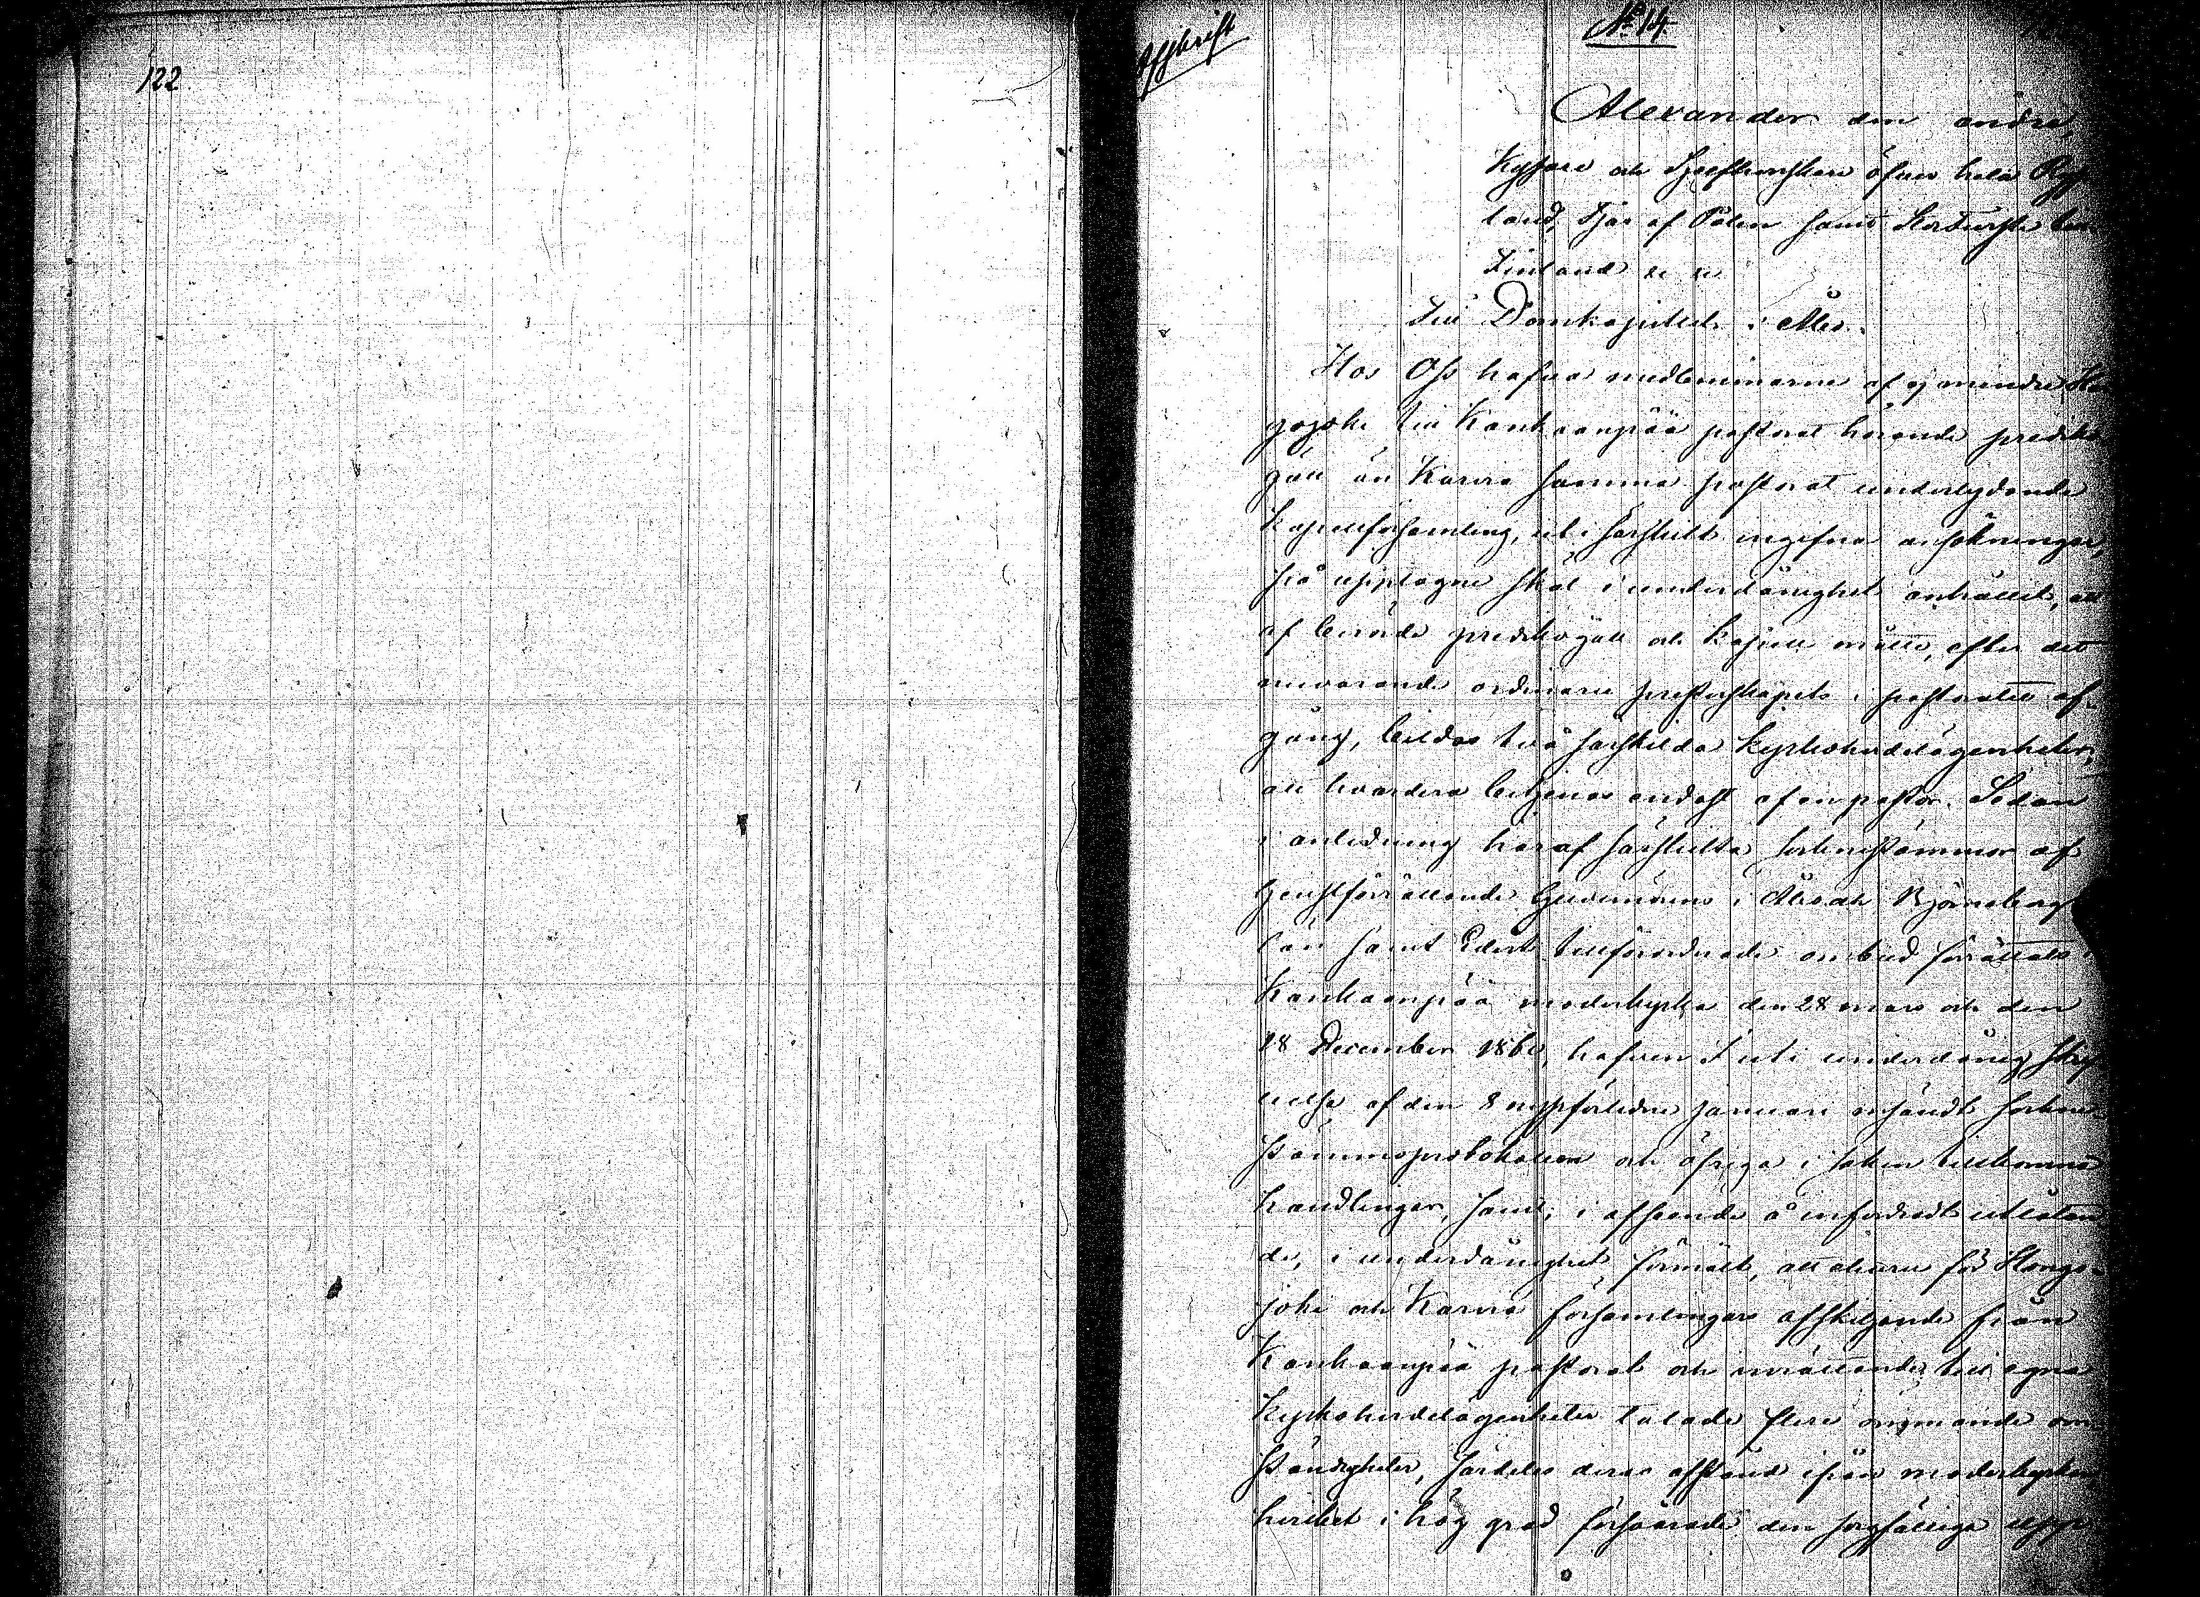 122
Afskrift
No 14.
Alexander den andre,
Kejsare och Sjelfherrskare öfver hela Ryss
land, Tzar af Polen samt Storfurste till
Finland &c &c
Till Domkapitlet i Åbo.
Hos Oss hafva medlemmarne af ej mindre Hon
gojoki till Kankaanpää pastorat hörande prediko
gäll än Karvia samma pastorat underlydande
kapellförsamling, uti särskildt ingifna ansökningar,
på upptagne skäl i underdånighet anhållit, att
af berörde predikogäll och kapell måtte, efter det
nuvarande ordinarie presterskapets i pastoratet af-
gång, bildas två särskilda kyrkoherdelägenheter,
att hvardera betjenas endast af en pastor. Sedan
i anledning häraf särskilta sockenstämmor af
tjenstförrättande Guvernörens i Åbo och Björneborgs
län samt Edert tillförordnade ombud förrättats i
Kankaanpää moderkyrka den 28 mars och den
18 December 1860, hafven I uti underdånig skrif
velse af den 8 nystförledne Januari insändt socken-
stämmoprotokollen och öfriga i saken tillkomna
handlingar, samt, i afseende å infordradt utlåtan
de, i underdånighet förmält, att ehuru för Hongo-
joki och Karvia församlingars afskiljande från
Kankaanpää pastorat och inrättande till egna
kyrkoherdelägenheter talade flere ömmande om-
ständigheter, särdeles deras afstånd ifrån moderkyrkan
hvilket i hög grad försvårade den sorgfälliga upp-